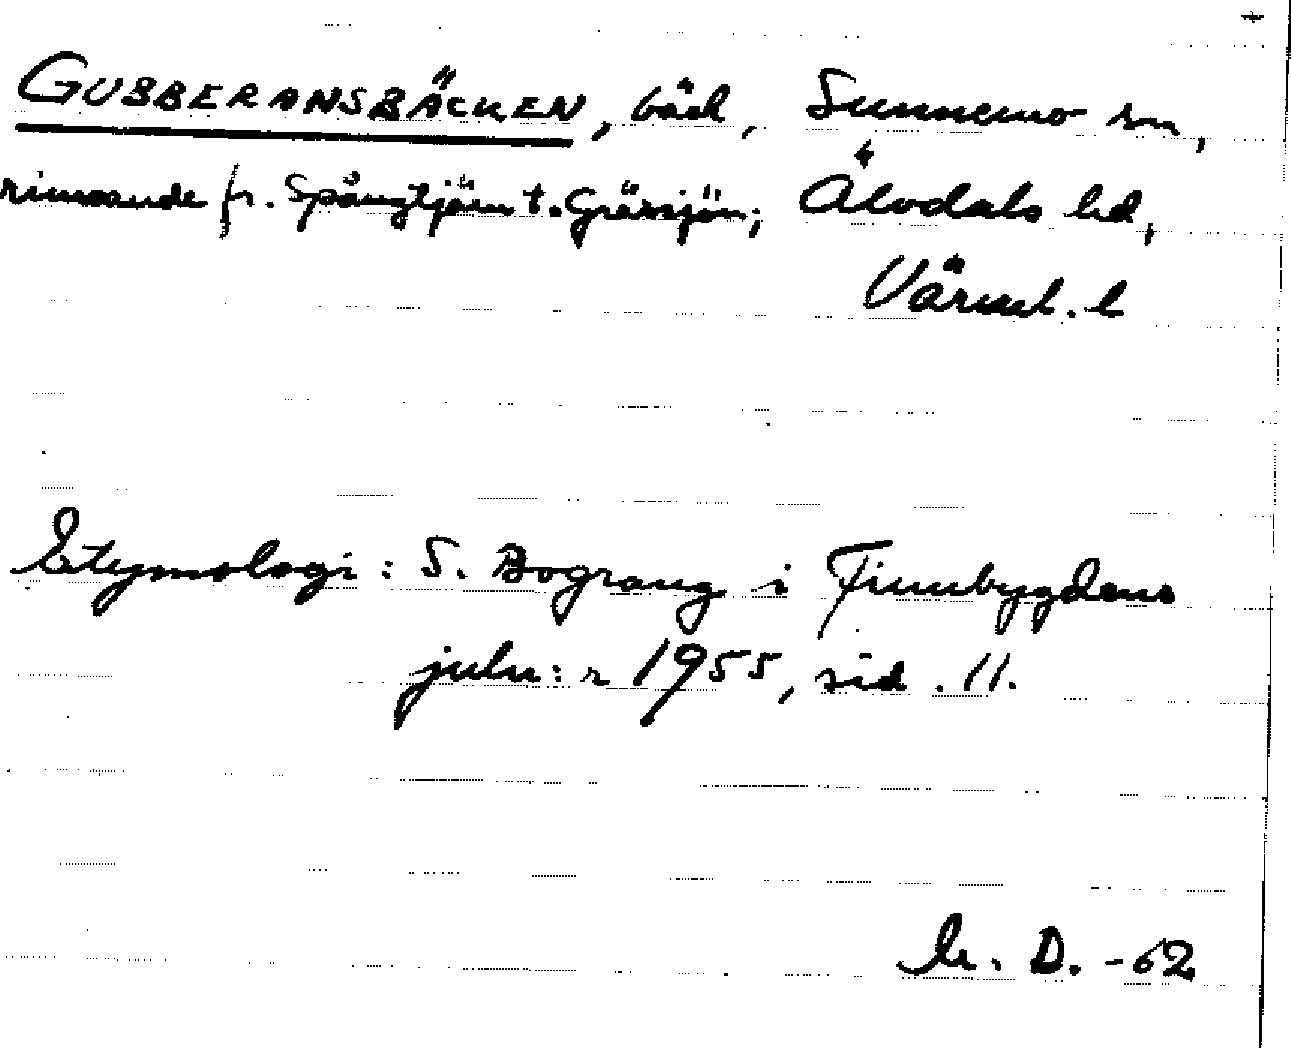 GUBBERANSBÄCKEN, bäck, Sunnemo sn,
rinnande fr. Spångtjärn t. Gräsjön; Älvdals hd,
Värml. l
Etymologi: S. Bograng i Finnbygdens
juln:r 1955, sid. 11.
D. -62